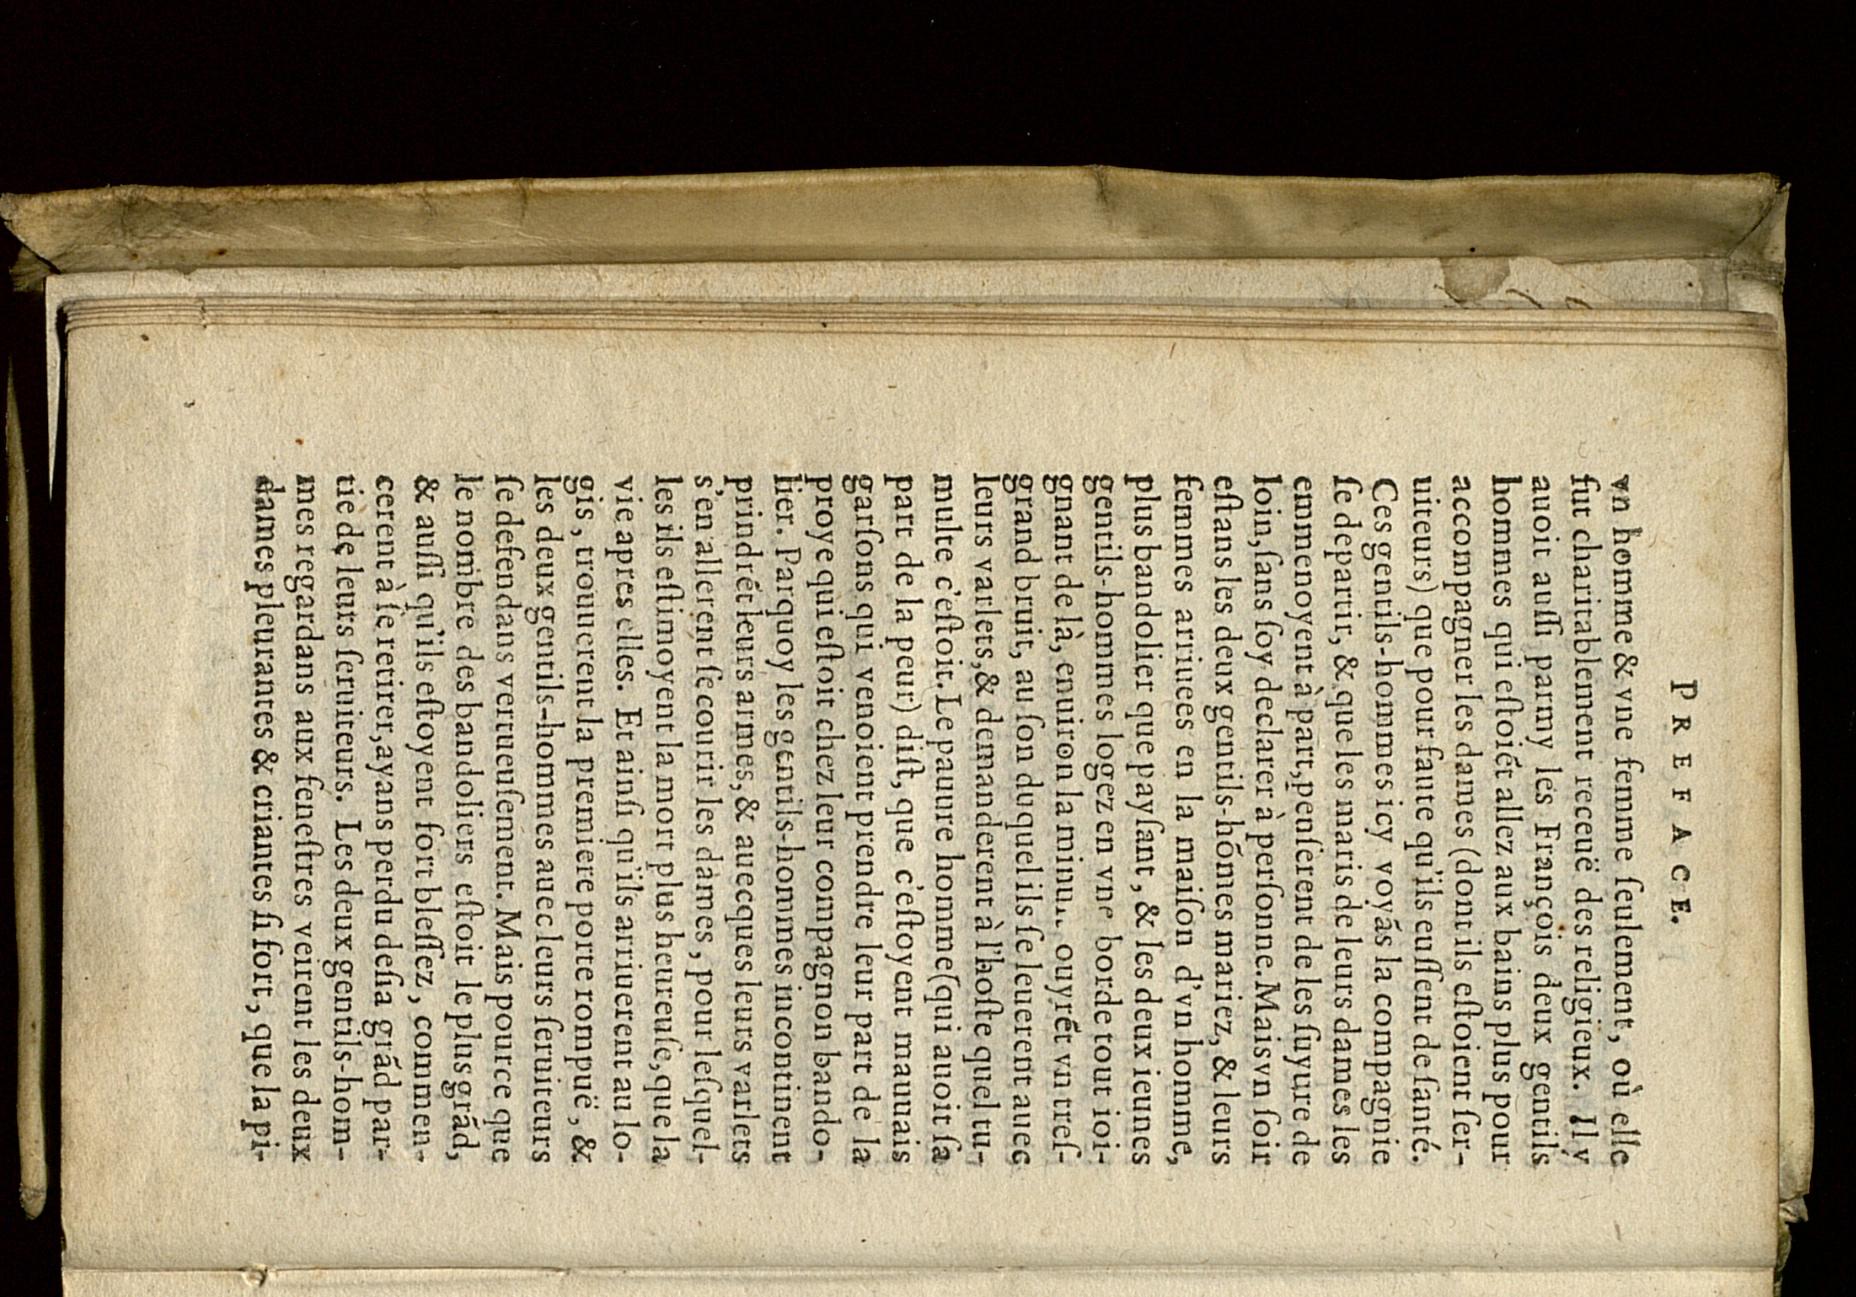 PREFACE.
vn homme & vne femme ſeulement, où elle
fut charitablement receuë des religieux. Il y
auoit auſſi parmy les François deux gentils
hommes qui eſtoiẽt allez aux bains plus pour
accompagner les dames (dont ils eſtoient ſer-
uiteurs) que pour faute qu'ils euſſent de ſanté.
Ces gentils-hommes icy voyãs la compagnie
ſe departir, & que les maris de leurs dames les
emmenoyent à part, penſerent de les ſuyure de
loin, ſans ſoy declarer à perſonne. Mais vn ſoir
eſtans les deux gentils-hõmes mariez, & leurs
femmes arriuees en la maiſon d'vn homme,
plus bandolier que payſant, & les deux ieunes
gentils-hommes logez en vne borde tout ioi-
gnant de là, enuiron la minu.. ouyrẽt vn treſ-
grand bruit, au ſon duquel ils ſe leuerent auec
leurs varlets, & demanderent à l'hoſte quel tu-
multe c'eſtoit. Le pauure homme (qui auoit ſa
part de la peur) diſt, que c'eſtoyent mauuais
garſons qui venoient prendre leur part de la
proye qui eſtoit chez leur compagnon bando-
lier. Parquoy les gentils-hommes incontinent
prindrẽt leurs armes, & auecques leurs varlets
s'en allerent ſecourir les dames, pour leſquel-
les ils eſtimoyent la mort plus heureuſe, que la
vie apres elles. Et ainſi qu'ils arriuerent au lo-
gis, trouuerent la premiere porte rompuë, &
les deux gentils-hommes auec leurs ſeruiteurs
ſe defendans vertueuſement. Mais pource que
le nombre des bandoliers eſtoit le plus grãd,
& auſſi qu'ils eſtoyent fort bleſſez, commen-
cerent à ſe retirer, ayans perdu deſia grãd par-
tie de leurs ſeruiteurs. Les deux gentils-hom-
mes regardans aux feneſtres veirent les deux
dames pleurantes & criantes ſi fort, que la pi-